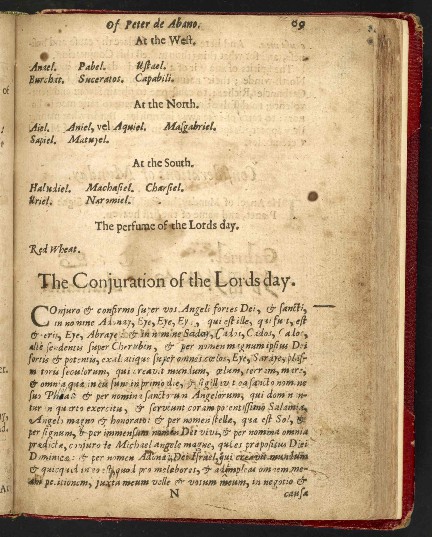 Of Peter de Abano. 89
At the West.
Anael. Pabel. Ustael.
Burchat. Suceratos. Capabili.
At the North.
Aiel. Aniel, vel Aquiel. Masgabriel.
Sapiel. Matuyel.
At the South.
Haludiel. Machasiel. Charsiel.
Uriel. Naromiel.
The perfume of the Lords day.
Red Wheat.
The Conjuration of the Lords day.
COnjuro & confirmo super vos Angeli fortes Dei, & sancti,
in nomine Adonay, Eye, Eye, Eye, qui est ille, qui fuit, est
& erit, Eye, Abraye: & in nomine Saday, Cados, Cados, Cados,
alte sedentis super Cherubin, & per nomen magnum ipsius Dei
fortis & potentis, exaltatique super omnes cœlos, Eye, Saraye, plasmatoris
seculorum, qui creavit mundum, cœlum, terram, mare,
& omnia quæ in eis sunt in primo die, & sigillavit ea sancto nomine
suo Phaa: & per nomina sanctorum Angelorum, qui dominantur
in quarto exercitu, & serviunt coram potentissimo Salamia,
Angelo magno & honorato: & per nomen stellæ, quæ est Sol, &
per signum, & per immensum nomen Dei vivi, & per nomina omnia
prædicta, conjuro te Michael angele magne, qui es præpositus Diei
Dominicæ: & per nomen Adonay, Dei Israel, qui creavit mundum
& quicquid in eo est, quod pro me labores, & adimpleas omnem meam
petitionem, juxta meum velle & votum meum, in negotio &
N causa